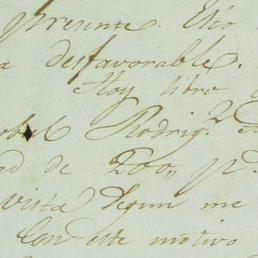 presente. Esto
a desfavorable.
Hoy libro
Rodrig.z
de 200,, p.
vista segun me
Con este motivo